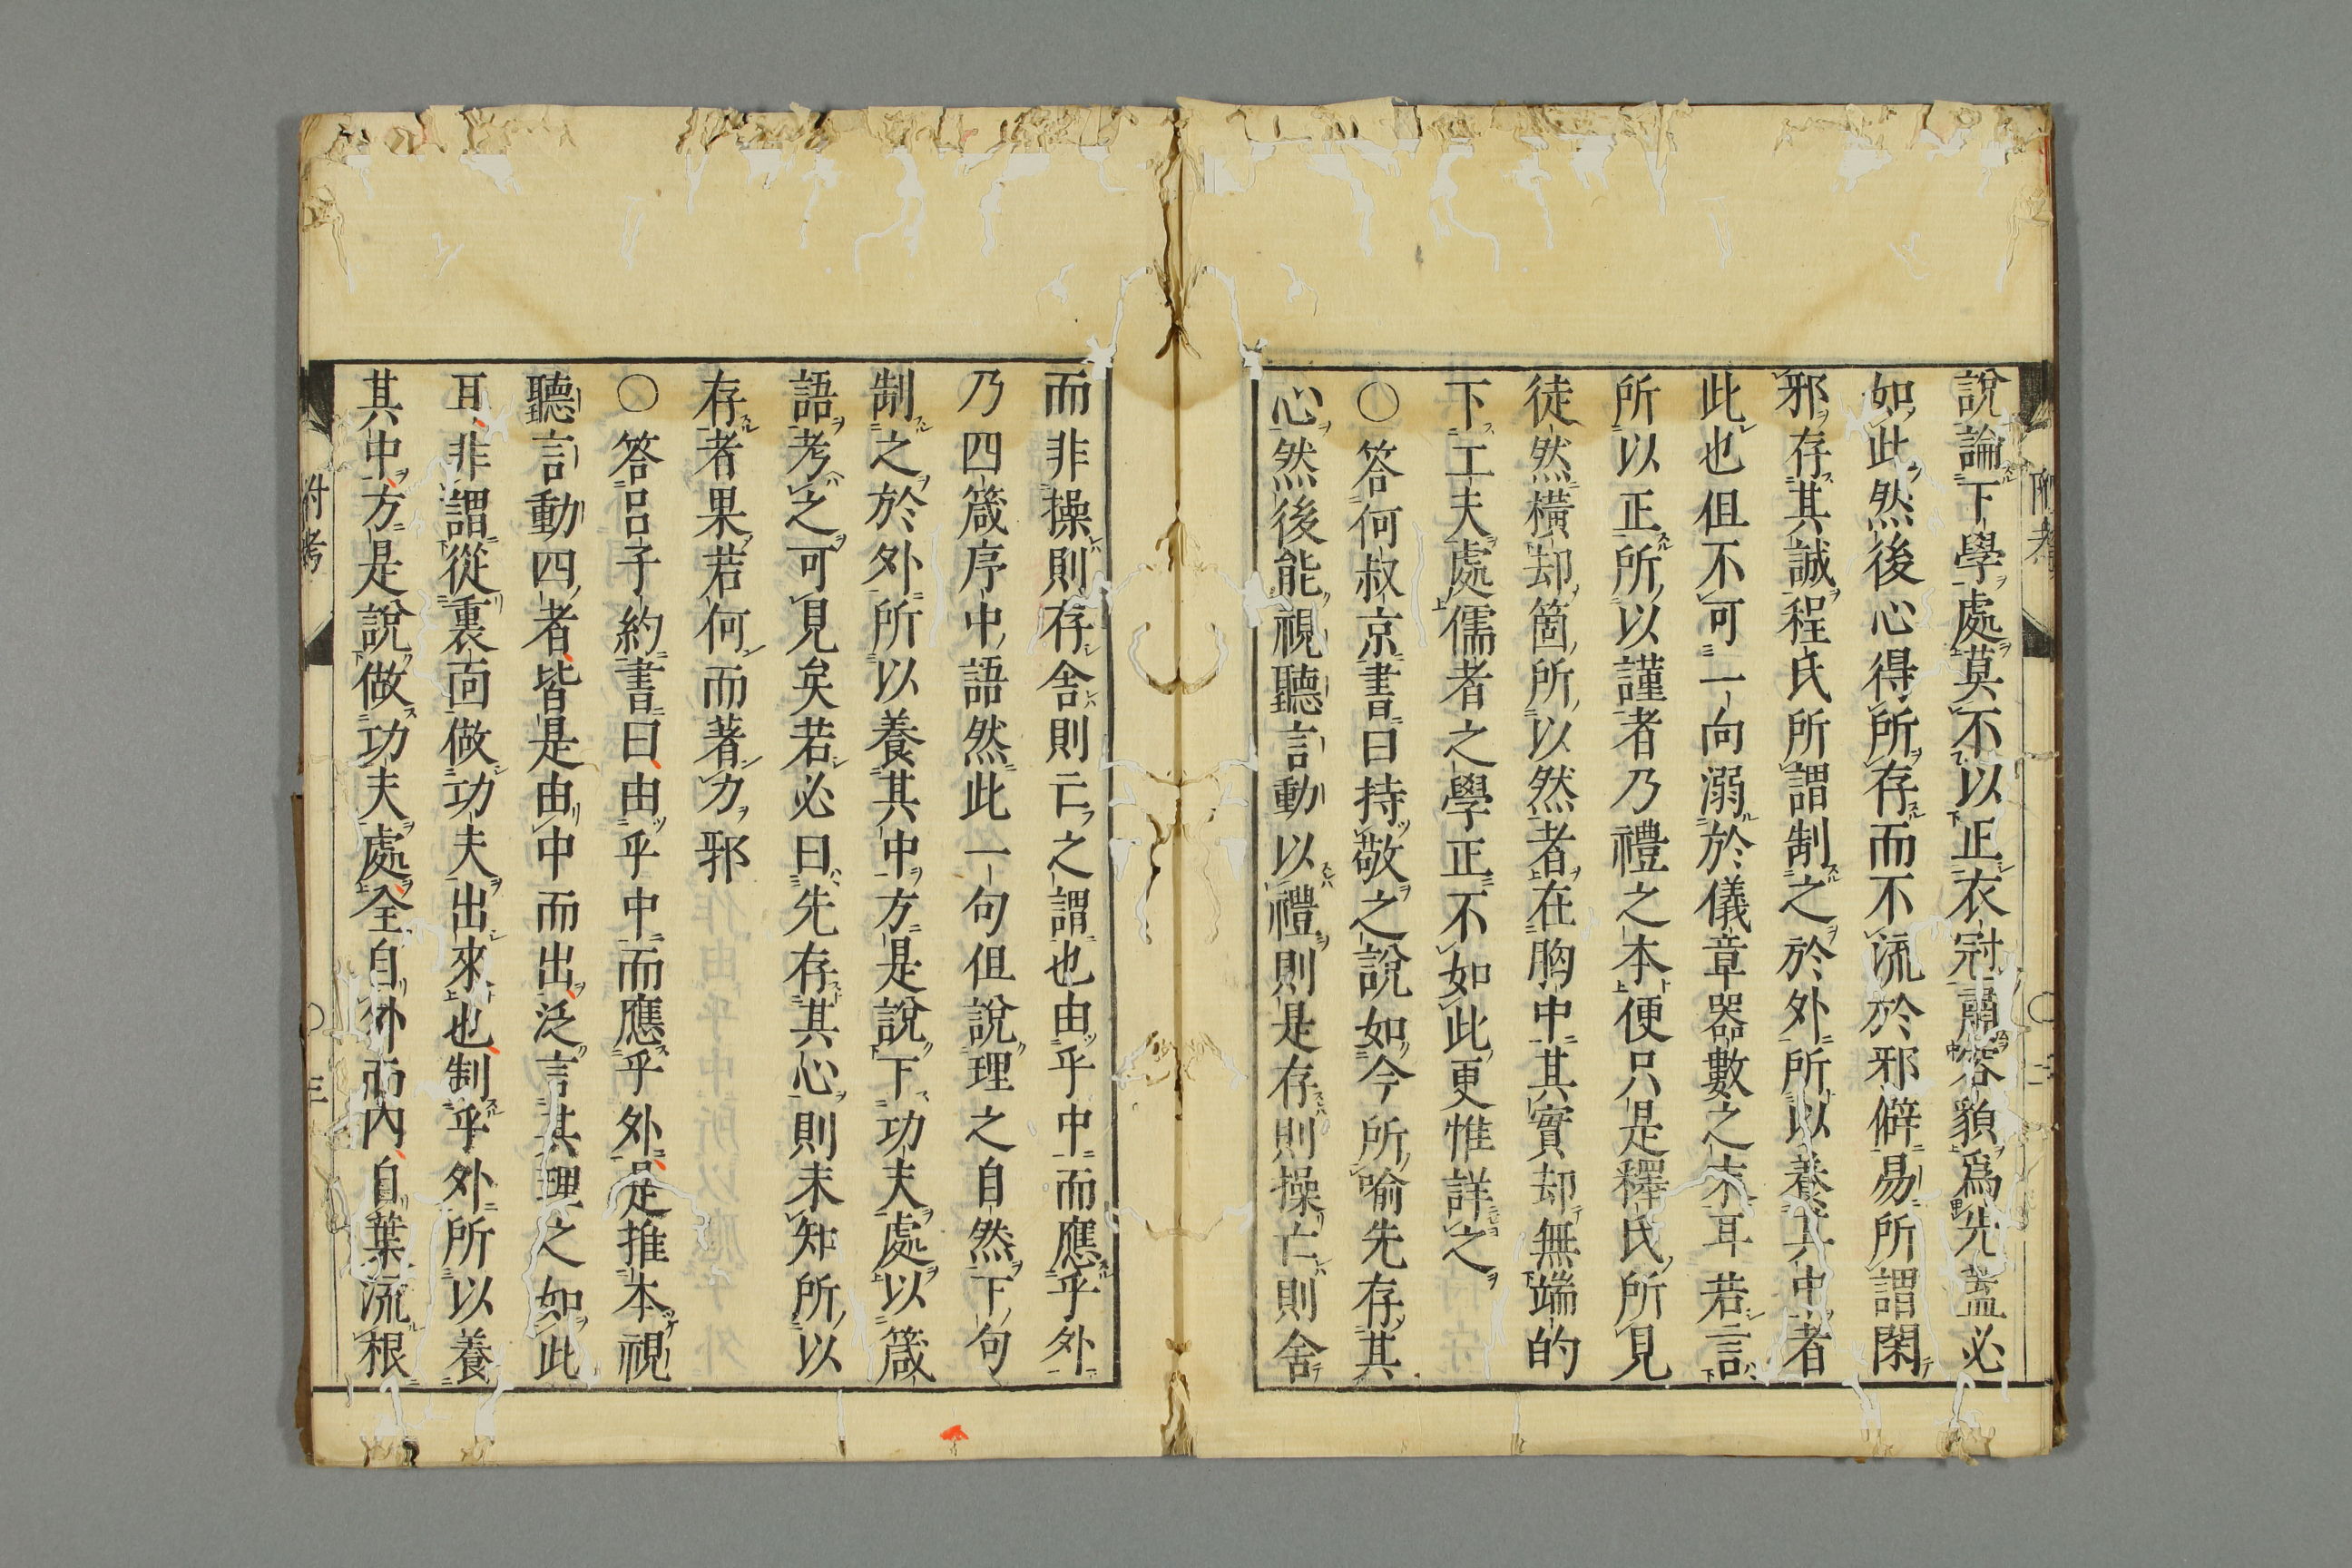 說論下學處莫不以正衣冠肅容貌爲先蓋必
如此然後心得所存而不流於邪僻易所謂閑
邪存其誠程氏所謂制之於外所以養其中者
此也但不可一向溺於儀章器數之末耳若言
所以正所以謹者乃禮之本便只是釋氏所見
徒然横却箇所以然者在胸中其實却無端的
下工夫處儒者之學正不如此更惟詳之
○答何叔京書曰持敬之說如今所喻先存其
心然後能視聽言動以禮則是存則操亡則舍
而非操則存舍則亡之謂也由乎中而應乎外
乃四箴序中語然此一句但說理之自然下句
制之於外所以養其中方是說下功夫處以箴
語考之可見矣若必曰先存其心則未知所以
存者果若何而著力邪
○答呂子約書曰由乎中而應乎外是推本視
聽言動四者皆是由中而出泛言其理之如此
耳非謂從裏面做功夫出來也制乎外所以養
其中方是說做功夫處全自外而內自葉流根
附考
三